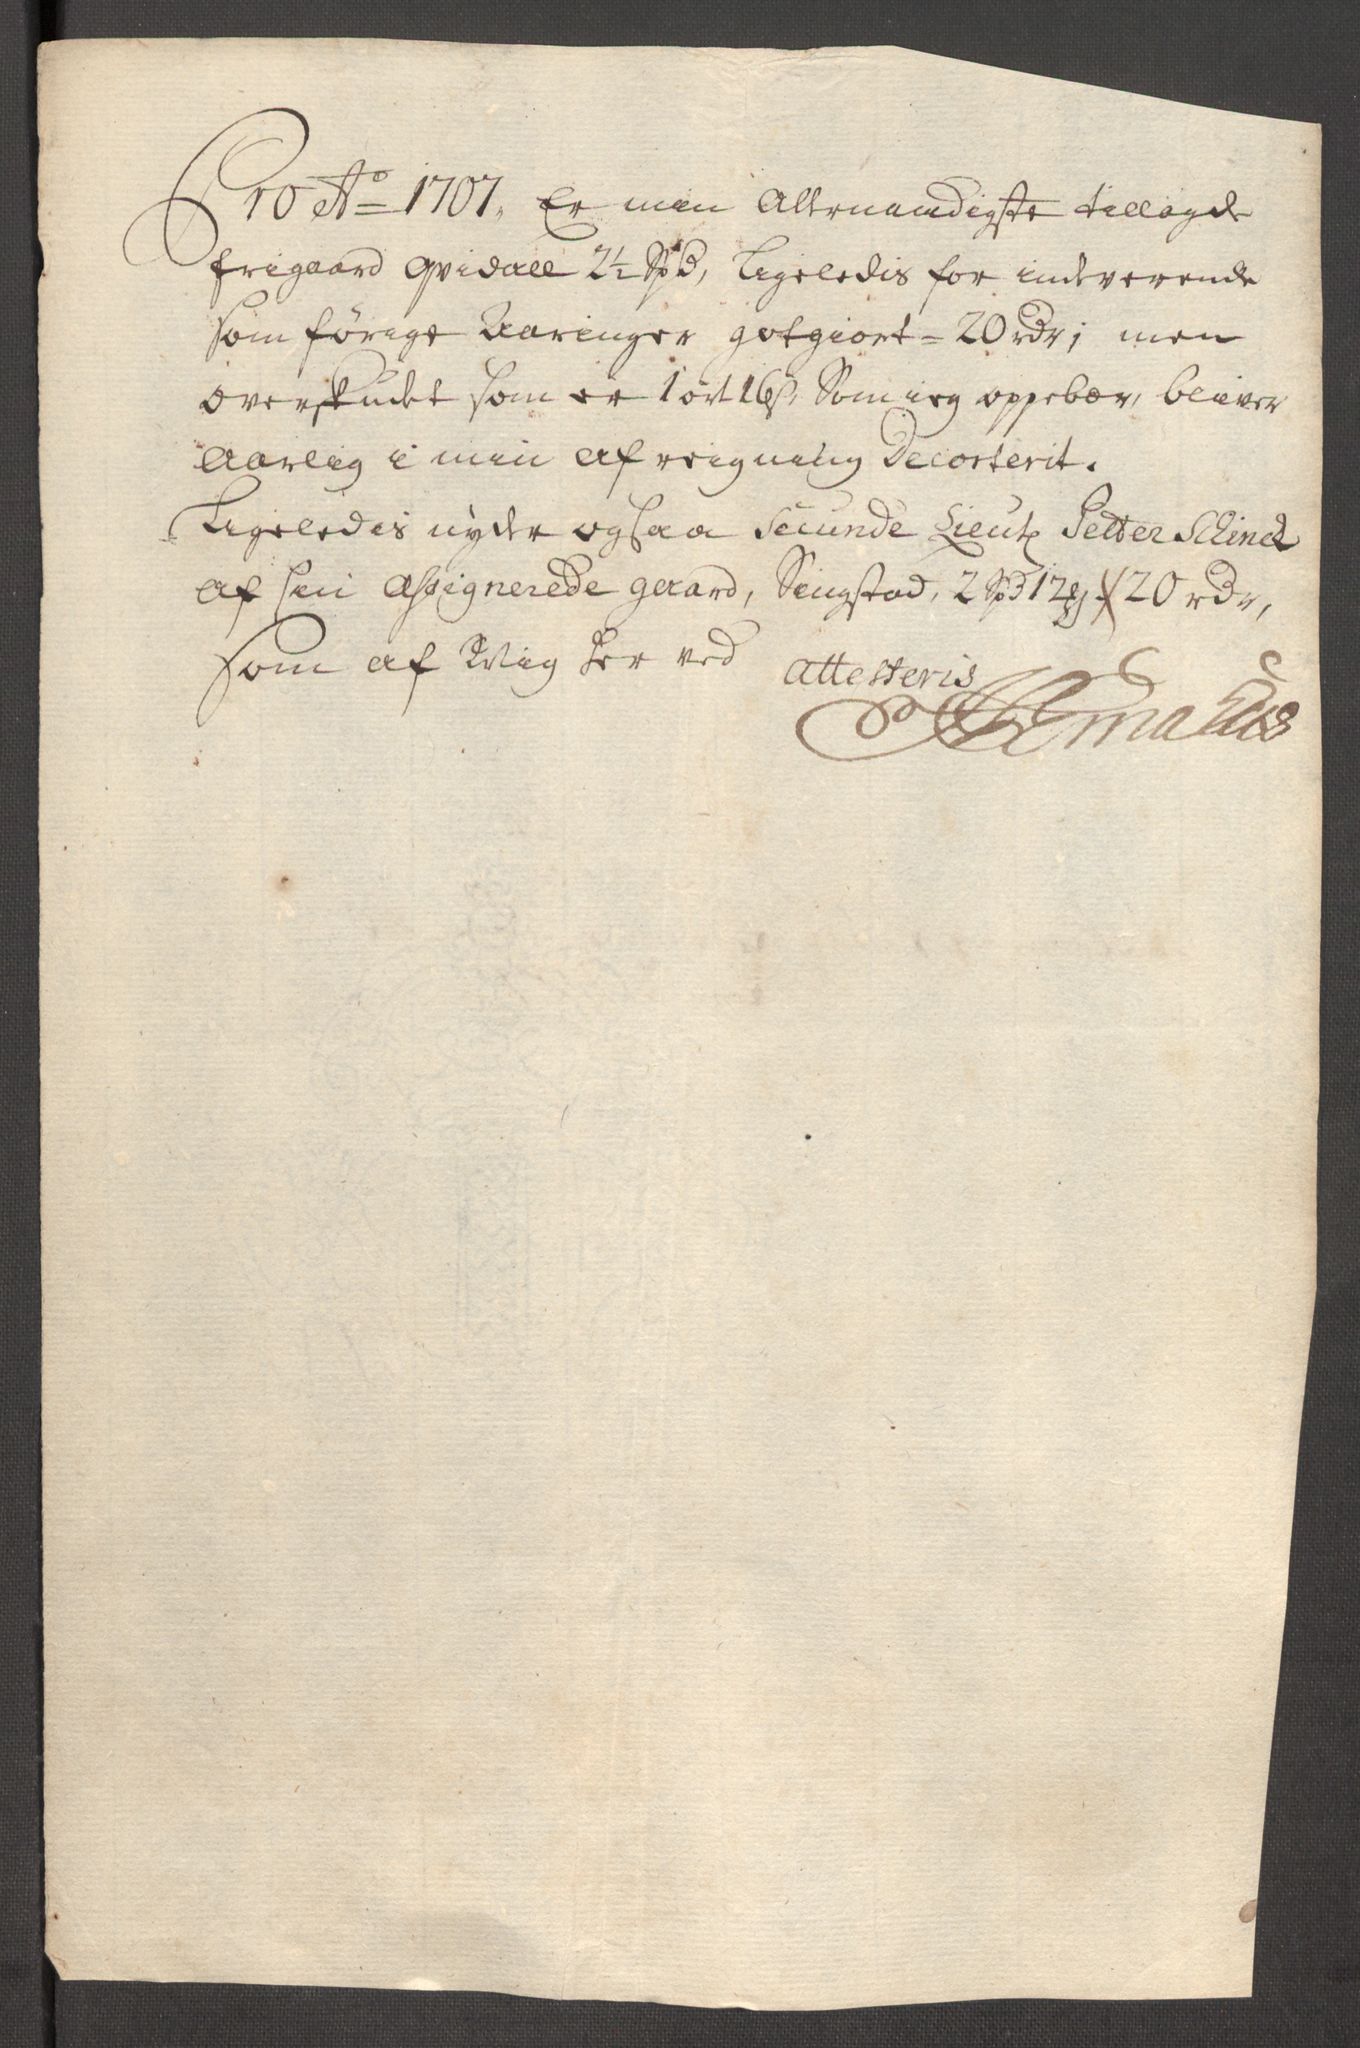 Pro Ao 1707, Er min Allernaadigste tillagde
friegaard Qvidall 2½ Sp℔, Ligeledis for indeverende
som førige Aaringer gotgiort = 20 rdr; men
overskudet som er 1 ort 16 s, Som ieg oppebær, bliver
Aarlig i min afreigning Decorterit.
Ligeledis nyder ogsaa Secunde Lieut Petter Schinck
af sin Assignerede gaard, Singstad, 2 Sp℔ 12 20 rdr,
som af Mig her ved attesteris